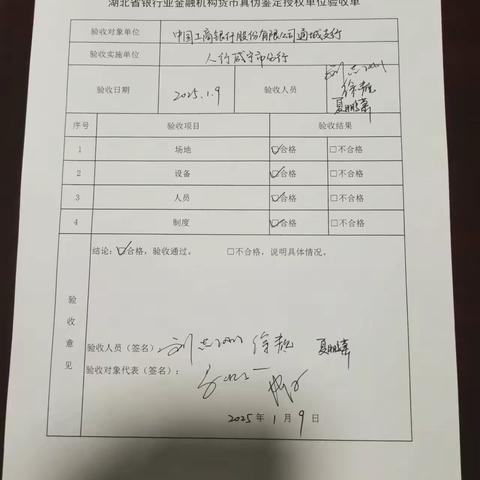 湖北省银行业金融机构货币真伪鉴定授权单位验收单
验收对象单位 中国工商银行股份有限公司通城支行
验收实施单位 人行咸宁市分行
验收日期 2025.1.9 验收人员
夏鹏
序号 验收项目 验收结果
1 场地 ☑合格 □不合格
2 设备 ☑合格 □不合格
3 人员 ☑合格 □不合格
4 制度 ☑合格 □不合格
验收意见
结论：☑合格，验收通过。 □不合格，说明具体情况。
验收人员（签名）：
验收对象代表（签名）：
2025年1月9日